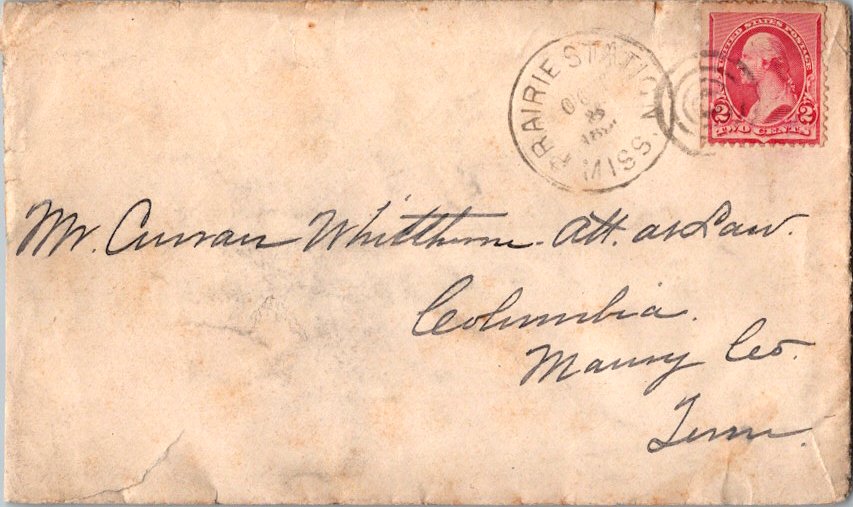 PRAIRIE STATION MISS.
UNITED STATES POSTAGE
2 2
TWO CENTS
Mr. Curran Whitthorne Att. at Law.
Columbia.
Maury Co.
Tenn.